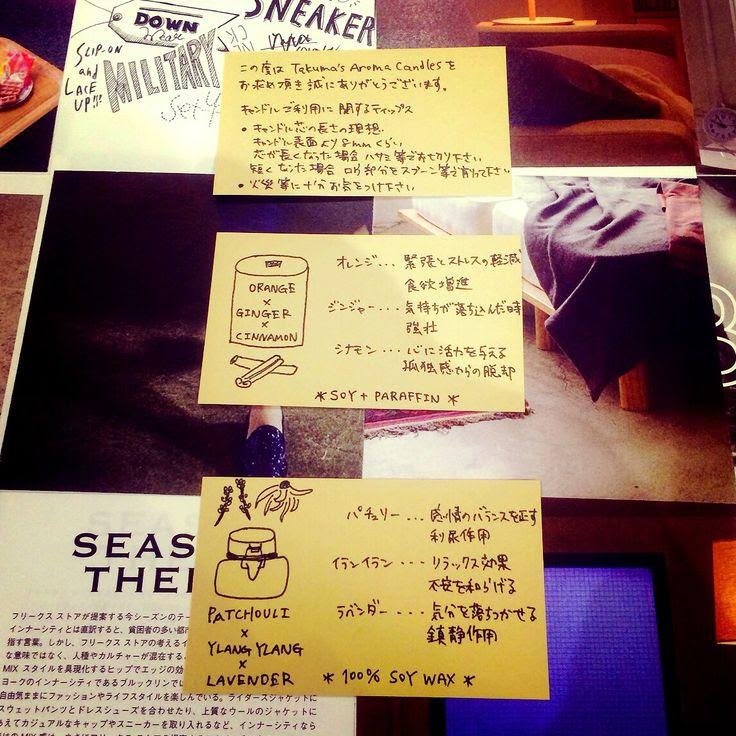 SNEAKER
DOWN
Wear
SLIP-ON
and
LACE
UP!!!
MILITARY
この度は Takuma's Aroma Candlesを
お求め頂き誠にありがとうございます。
キャンドルご利用に関するティップス
• キャンドル芯の長さの理想.
キャンドル表面より8mmくらい
芯が長くなった場合 ハサミ等でお切り下さい
短くなった場合 凹部分をスプーン等で削って下さい
• 火災等に十分お気をつけ下さい
ORANGE
×
GINGER
×
CINNAMON
オレンジ... 緊張とストレスの軽減
食欲増進
ジンジャー... 気持ちが落ち込んだ時
強壮
シナモン... 心に活力を与える
孤独感からの脱却
* SOY + PARAFFIN *
パチュリー... 感情のバランスを正す
利尿作用
イランイラン... リラックス効果
不安を和らげる
ラベンダー... 気分を落ちつかせる
鎮静作用
PATCHOULI
×
YLANG YLANG
×
LAVENDER
* 100% SOY WAX *
SEAS
THE
フリークス ストアが提案する今シーズンのテー
インナーシティとは直訳すると、貧困者の多い都
指す言葉。しかし、フリークス ストアの考える
な意味ではなく、人種やカルチャーが混在する
MIX スタイルを具現化するヒップでエッジの効
ヨークのインナーシティであるブルックリンで
自由気ままにファッションやライフスタイルを楽しんでいる。ライダースジャケットに
スウェットパンツとドレスシューズを合わせたり、上質なウールのジャケットに
あえてカジュアルなキャップやスニーカーを取り入れるなど、インナーシティなら